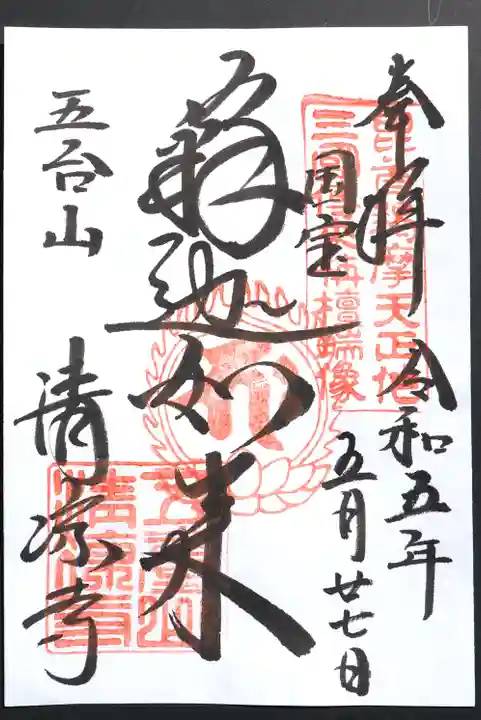 奉拝 令和五年
五月廿七日
国宝
釈迦如来
五台山
清凉寺
五臺山
清凉寺